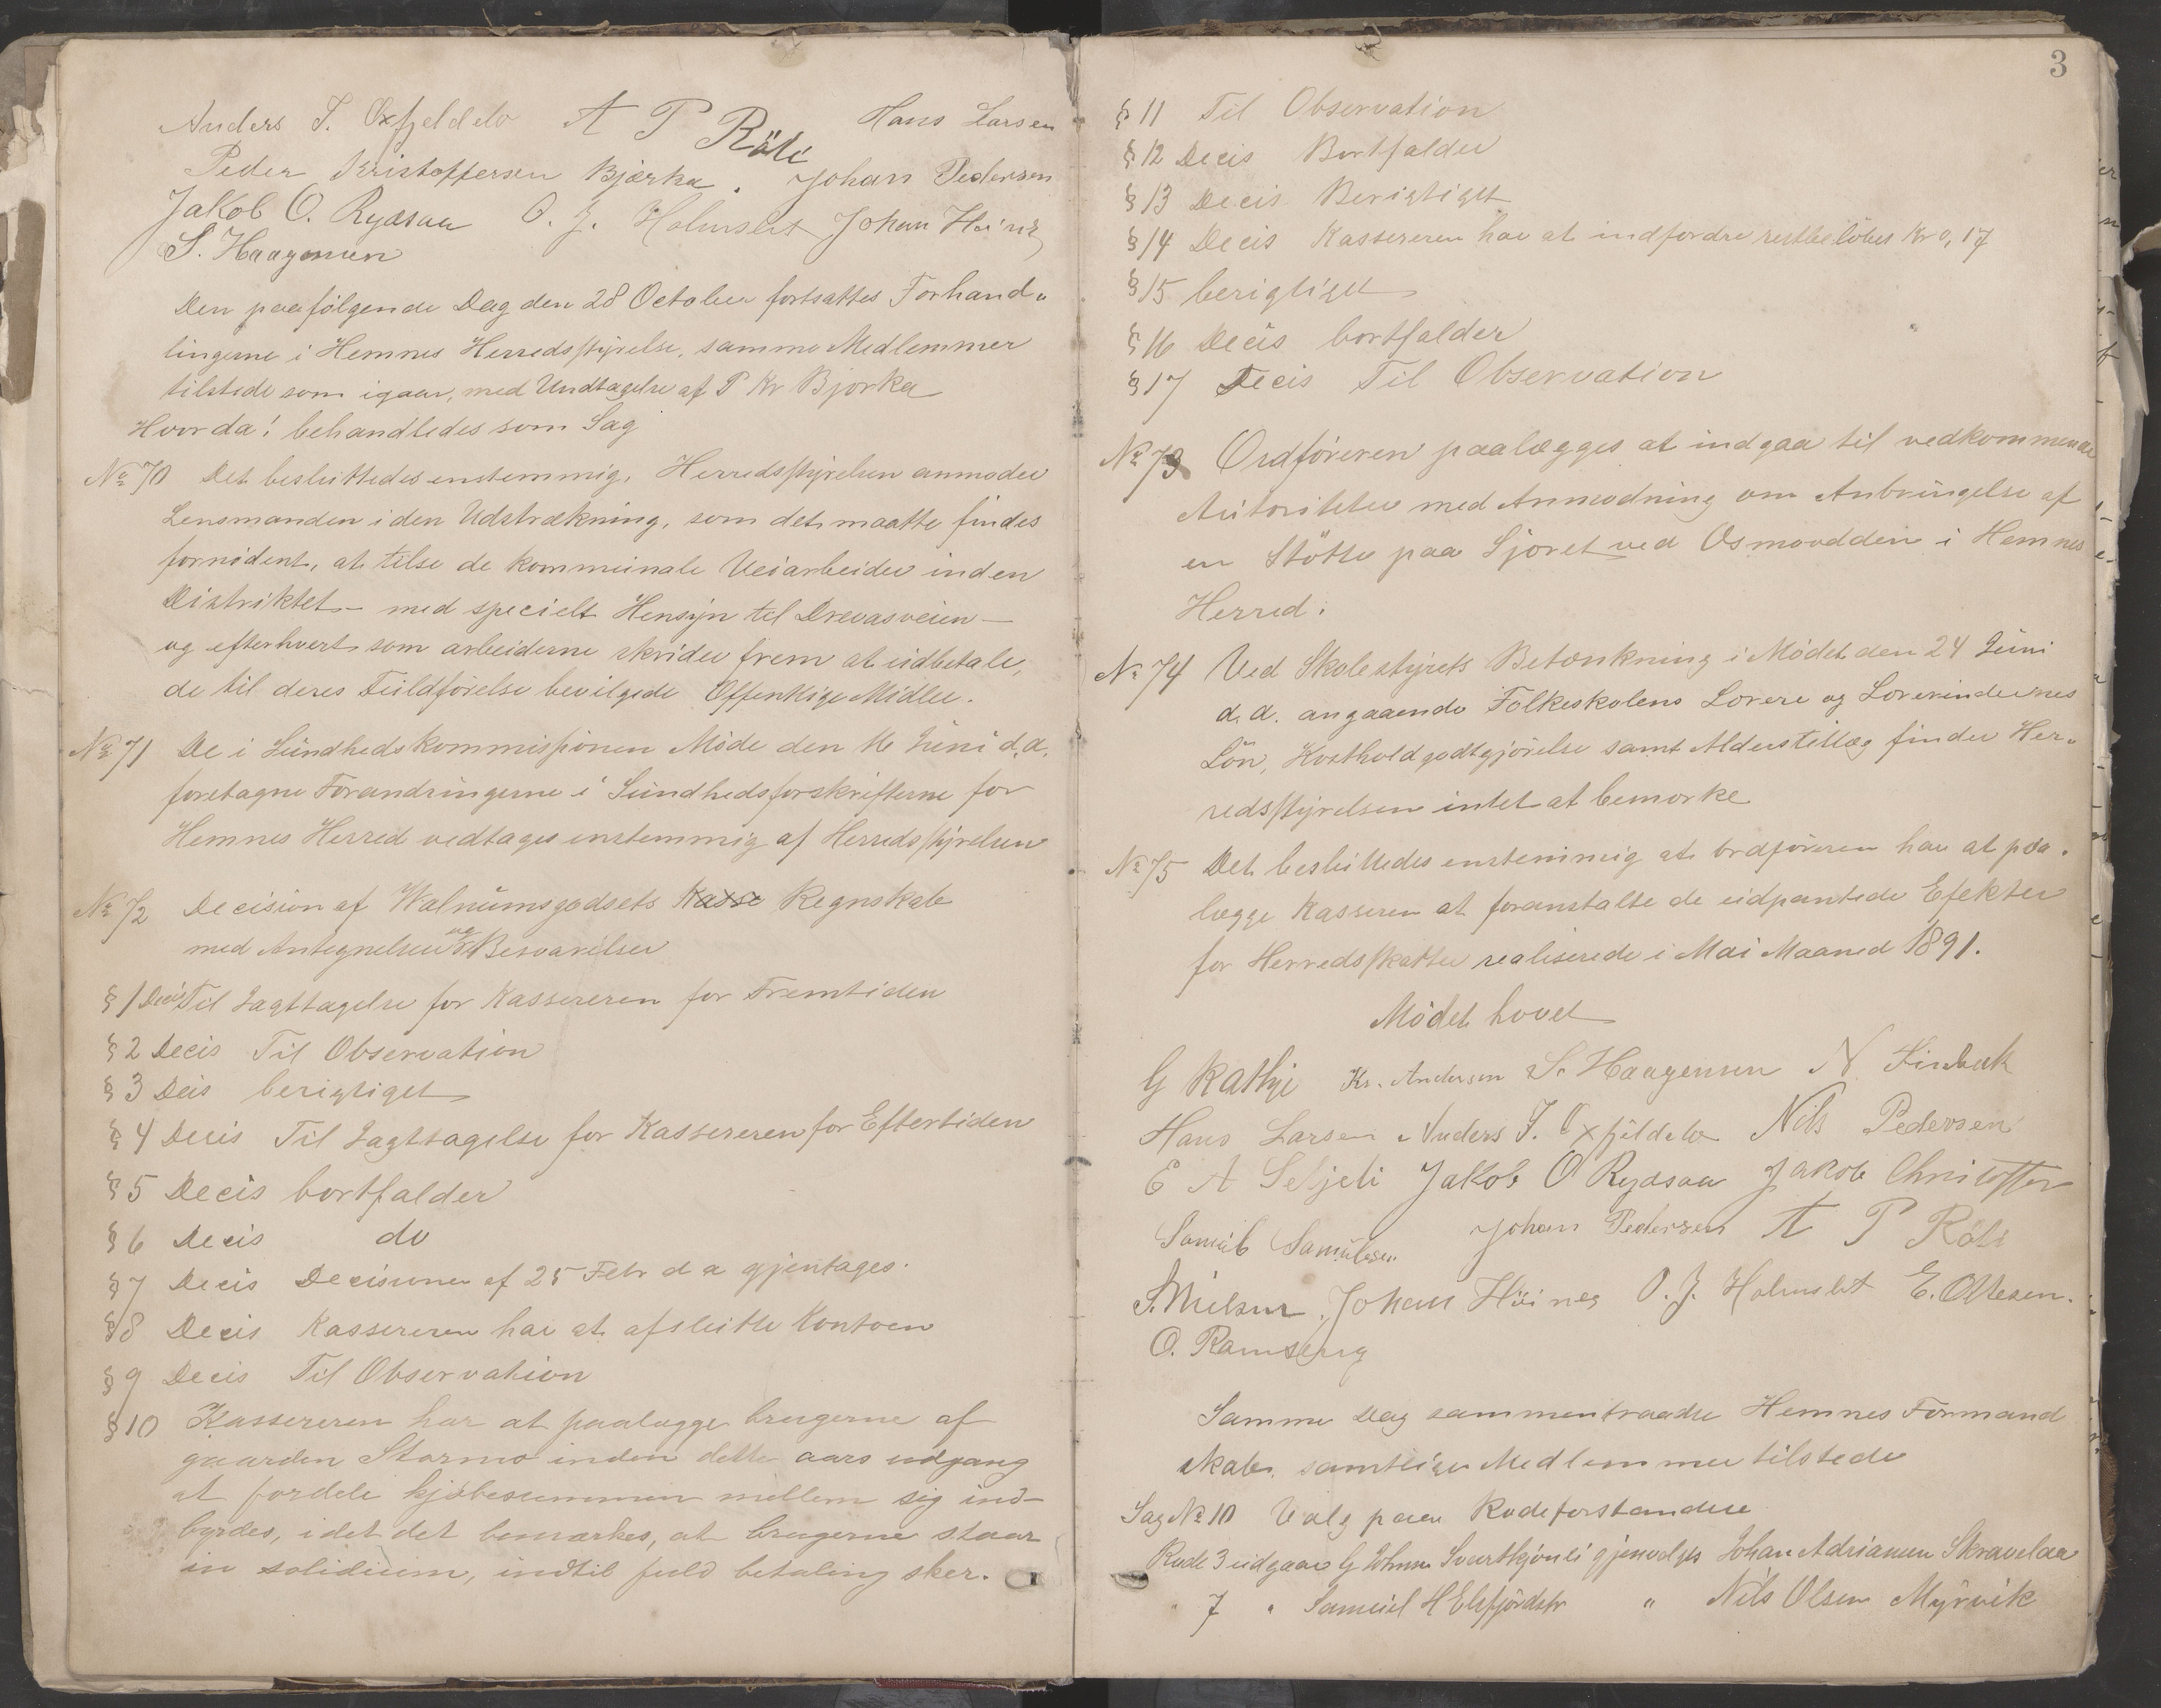 Anders J. Oxfjeldelv A P Röli Hans Larsen
Peder Kristoffersen Bjærka. Johan Pedersen
Jakob O. Rydsaa O. J. Holmslet Johan Heines
S. Haagensen
Den paafölgende Dag den 28 October fortsattes Forhand-
lingerne i Hemnes Herredsstyrelse, samme Medlemmer
tilstede som igaar, med Undtagelse af P Kr Bjorka
Hvorda! behandledes som Sag
No 70 Det besluttedes enstemmig, Herredsstyrelsen anmoder
Lensmanden i den Udstrækning, som det maatte findes
fornödent, at tilse de kommunale Veiarbeider inden
Distriktet - med specielt Hensyn til Drevasveien -
og efterhvert som arbeiderne skrider frem at udbetale,
de til deres Fuldförelse bevilgede Offentlige Midler.
No 71 De i Sundhedskommissionen Möde den 16 Juni d.a.
foretagne Forandringerne i Sundhedsforskrifterne for
Hemnes Herred vedtages enstemmig af Herredsstyrelsen
No 72 Decision af Walnumsgodsets Kasse Regnskab
med Antegnelser og Besvarelser
§ 1 Decis Til Iagttagelse for Kassereren for Fremtiden
§ 2 Decis Til Observation
§ 3 Decis berigtiget
§ 4 Decis Til Iagttagelse for Kassereren for Eftertiden
§ 5 Decis bortfalder
§ 6 Decis do
§ 7 Decis Decisionen af 25 Febr d a gjentages.
§ 8 Decis Kassereren har at afslutte Kontoen
§ 9 Decis Til Observation
§ 10 Kassereren har at paalægge brugerne af
gaarden Stormo inden dette aars udgang
at fordele kjöbesummen mellem sig ind-
byrdes, idet det bemærkes, at brugerne staar
in solidium, indtil fuld betaling sker.
3
§ 11 Til Observation
§ 12 Decis Bortfalder
§ 13 Decis Berigtiget
§ 14 Decis Kassereren har at indfordre restbelöbet Kr 0,17
§ 15 berigtiget
§ 16 Decis bortfalder
§ 17 Decis Til Observation
No 73 Ordföreren paalægges at indgaa til vedkommende
Autoriteter med Anmodning om Anbringelse af
en Stötte paa Sjoret ved Osmoodden i Hemnes
Herred.
No 74 Ved Skolestyrets Betænkning i Mödet den 24 Juni
d.a. angaaende Folkeskolens Lærere og Lærerindernes
Lön, Kostholdgodtgjörelse samt Alderstillæg finder Her-
redsstyrelsen intet at bemærke
No 75 Det besluttedes enstemmig at ordföreren har at paa-
lægge Kasseren at foranstalte de udpantede Efekter
for Herredsskatter realiserede i Mai Maaned 1891.
Mödet hævet
G Rathje Kr. Andersen S. Haagensen N. Finbak
Hans Larsen Anders J. Oxfjeldelv Nils Pedersen
E A Seljeli Jakob O Rydsaa Jakob Christoffer
Samuel Samuelsen Johan Pedersen A P Röli
S. Nielsen Johan Heines O. J. Holmslet E. Olsen.
O. Ramsberg
Samme Dag sammentraadte Hemnes Formand
skab, samtlige Medlemmer tilstede
Sag No 10 Valg paa Rodeforstandere
Rode 3 udgaar G Johnsen Svartkjønli gjenvalgtes Johan Adriansen Skravelaa
" 7 " Samuel H Elsfjördstr " Nils Olsen Myrvik